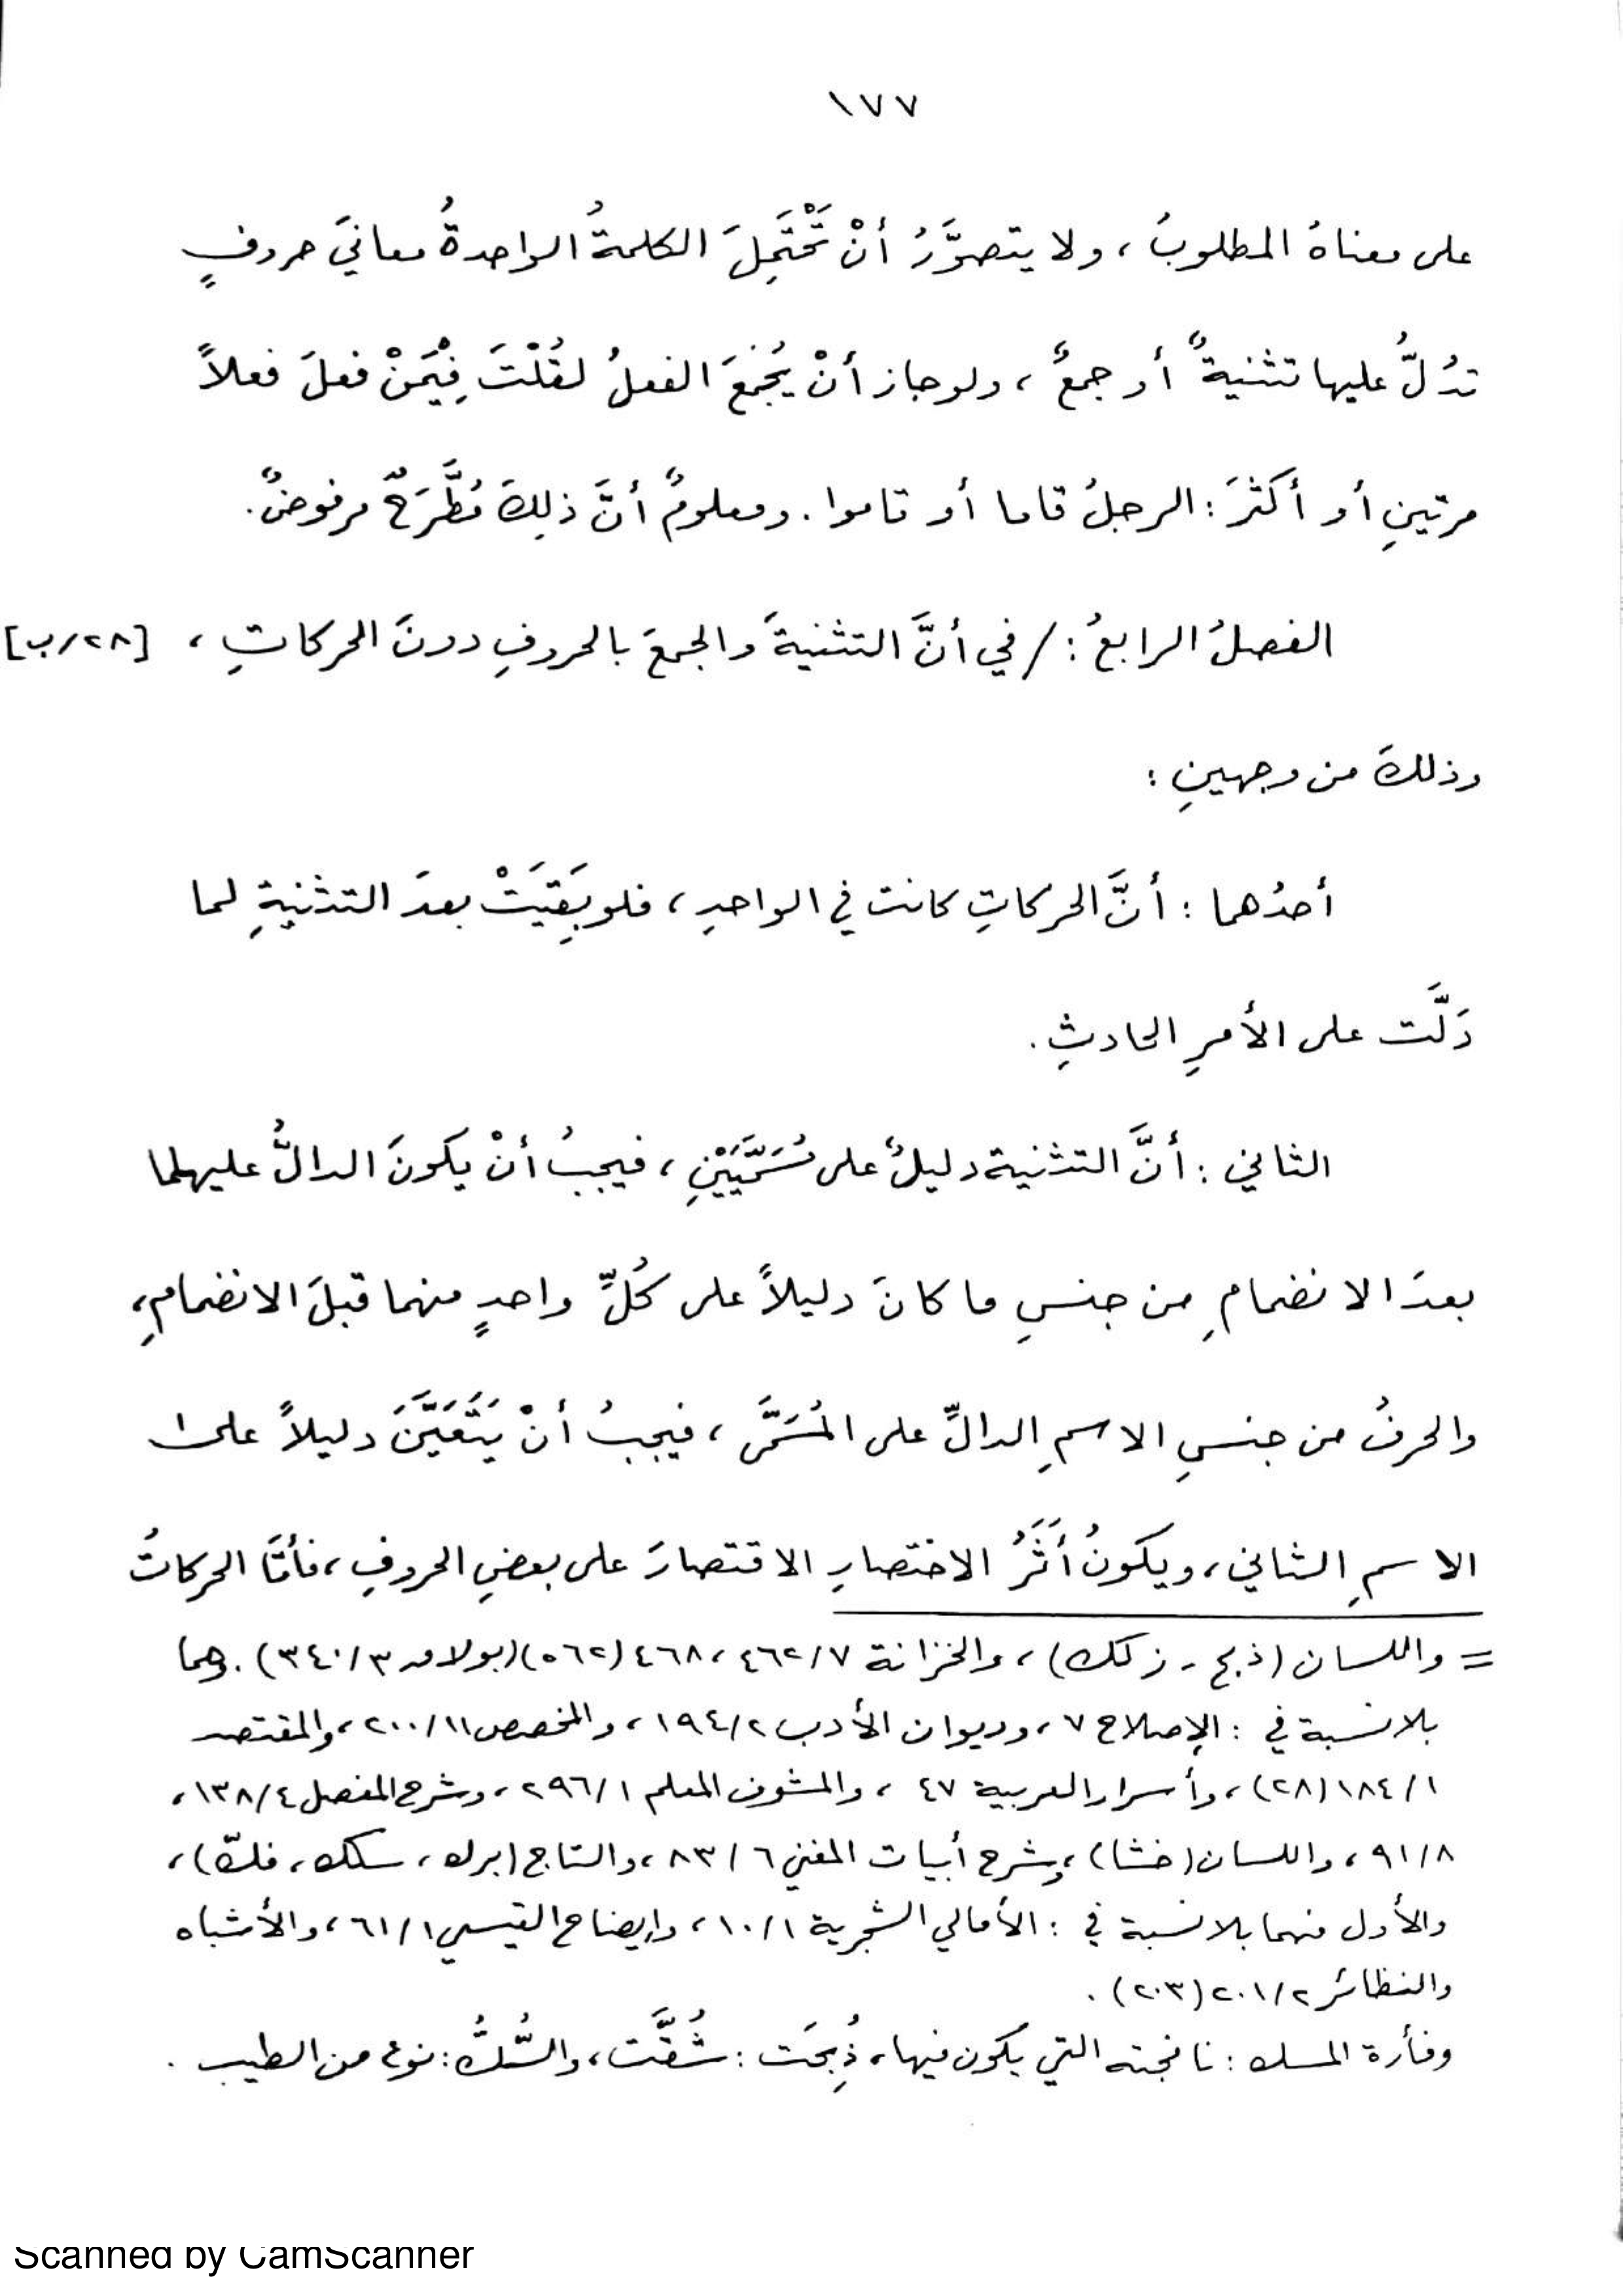 ١٧٧
على معناهُ المطلوبُ ، ولا يتصوَّرُ أنْ تَحْتَمِلَ الكلمةُ الواحدةُ معانيَ حروفٍ
تدُلُّ عليها تثنيةٌ أو جمعٌ ، ولو جاز أنْ يُجْمَعَ الفعلُ لقُلْتَ فِيْمَنْ فعلَ فعلاً
مرتينِ أو أكثرَ : الرجلُ قاما أو قاموا . ومعلومٌ أنَّ ذلِكَ مُطَّرَحٌ مرفوضٌ .
الفصلُ الرابعُ : / في أنَّ التثنيةَ والجمعَ بالحروفِ دونَ الحركاتِ ، [٢٨/ب]
وذلكَ من وجهينِ :
أحدُهما : أنَّ الحركاتِ كانت في الواحدِ ، فلو بَقِيَتْ بعدَ التثنيةِ لما
دَلَّت على الأمرِ الحادثِ .
الثاني : أنَّ التثنية دليلٌ على مُسَمَّيَيْنِ ، فيجبُ أنْ يكونَ الدالُّ عليهما
بعدَ الانضمامِ من جنسِ ما كانَ دليلاً على كُلِّ واحدٍ منهما قبلَ الانضمامِ ،
والحرفُ من جنسِ الاسمِ الدالِّ على المُسَمَّى ، فيجبُ أنْ يَتَعَيَّنَ دليلاً على
الاسمِ الثاني ، ويكونُ أَثَرُ الاختصارِ الاقتصارَ على بعضِ الحروفِ ، فأمَّا الحركاتُ
= واللسان (ذبح - زكك) ، والخزانة ٤٦٢/٧ ، ٤٦٨ (٥٦٢) (بولاق ٣٤٠/٣) . وهما
بلا نسبة في : الإصلاح ٧ ، وديوان الأدب ١٩٤/٢ ، والمخصص ٢٠٠/١١ ، والمقتصد
١٨٤/١ (٢٨) ، وأسرار العربية ٤٧ ، والمشوف المعلم ٢٩٦/١ ، وشرح المفصل ١٣٨/٤ ،
٩١/٨ ، واللسان (خشا) ، وشرح أبيات المغني ٨٣/٦ ، والتاج (برك ، سكك ، فكك) ،
والأول منهما بلا نسبة في : الأمالي الشجرية ١٠/١ ، وإيضاح القيسي ٦١/١ ، والأشباه
والنظائر ٢٠١/٢ (٢٠٣) .
وفأرة المسك : نافجته التي يكون فيها ، ذُبِحَت : شُقَّت ، والسُّكُّ : نوع من الطيب .
Scanned by CamScanner